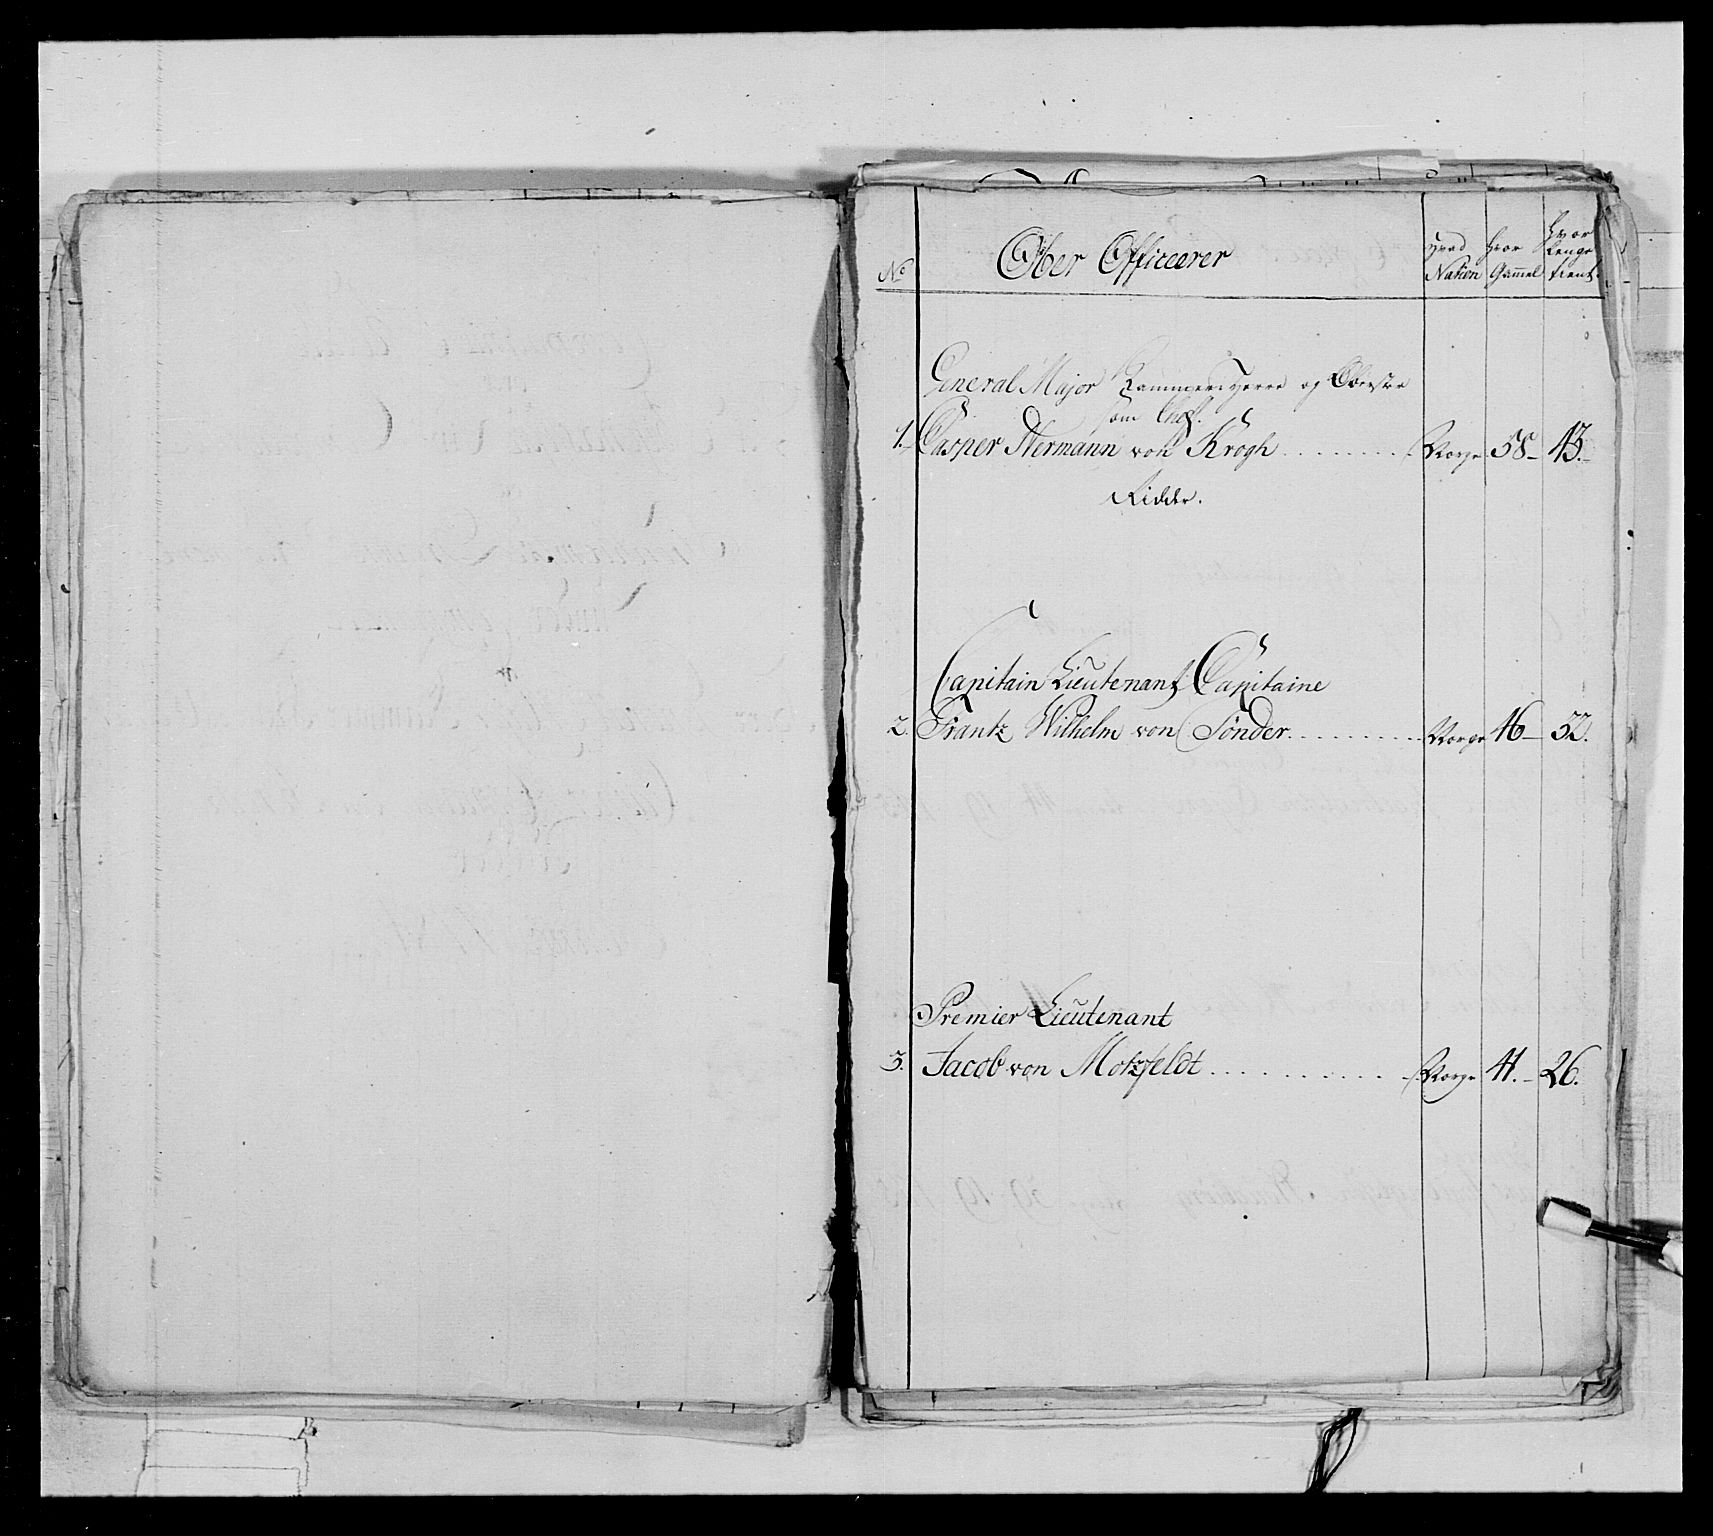 No
Ober Officeerer
Hvad Nation
Hvor Gammel
Hvor Lenge tient
General Major Kammer Herre og Oberste
som Chef.
1. Casper Hermann von Krogh . . . . . . . . Norge 58 – 43. –
Ridder.
Capitain Lieutenant Capitaine
2. Frantz Wilhelm von Sønder . . . . . . . . Norge 46 – 32.
Premier Lieutenant
3. Jacob von Motzfeldt . . . . . . . . . . Norge 41. – 26.